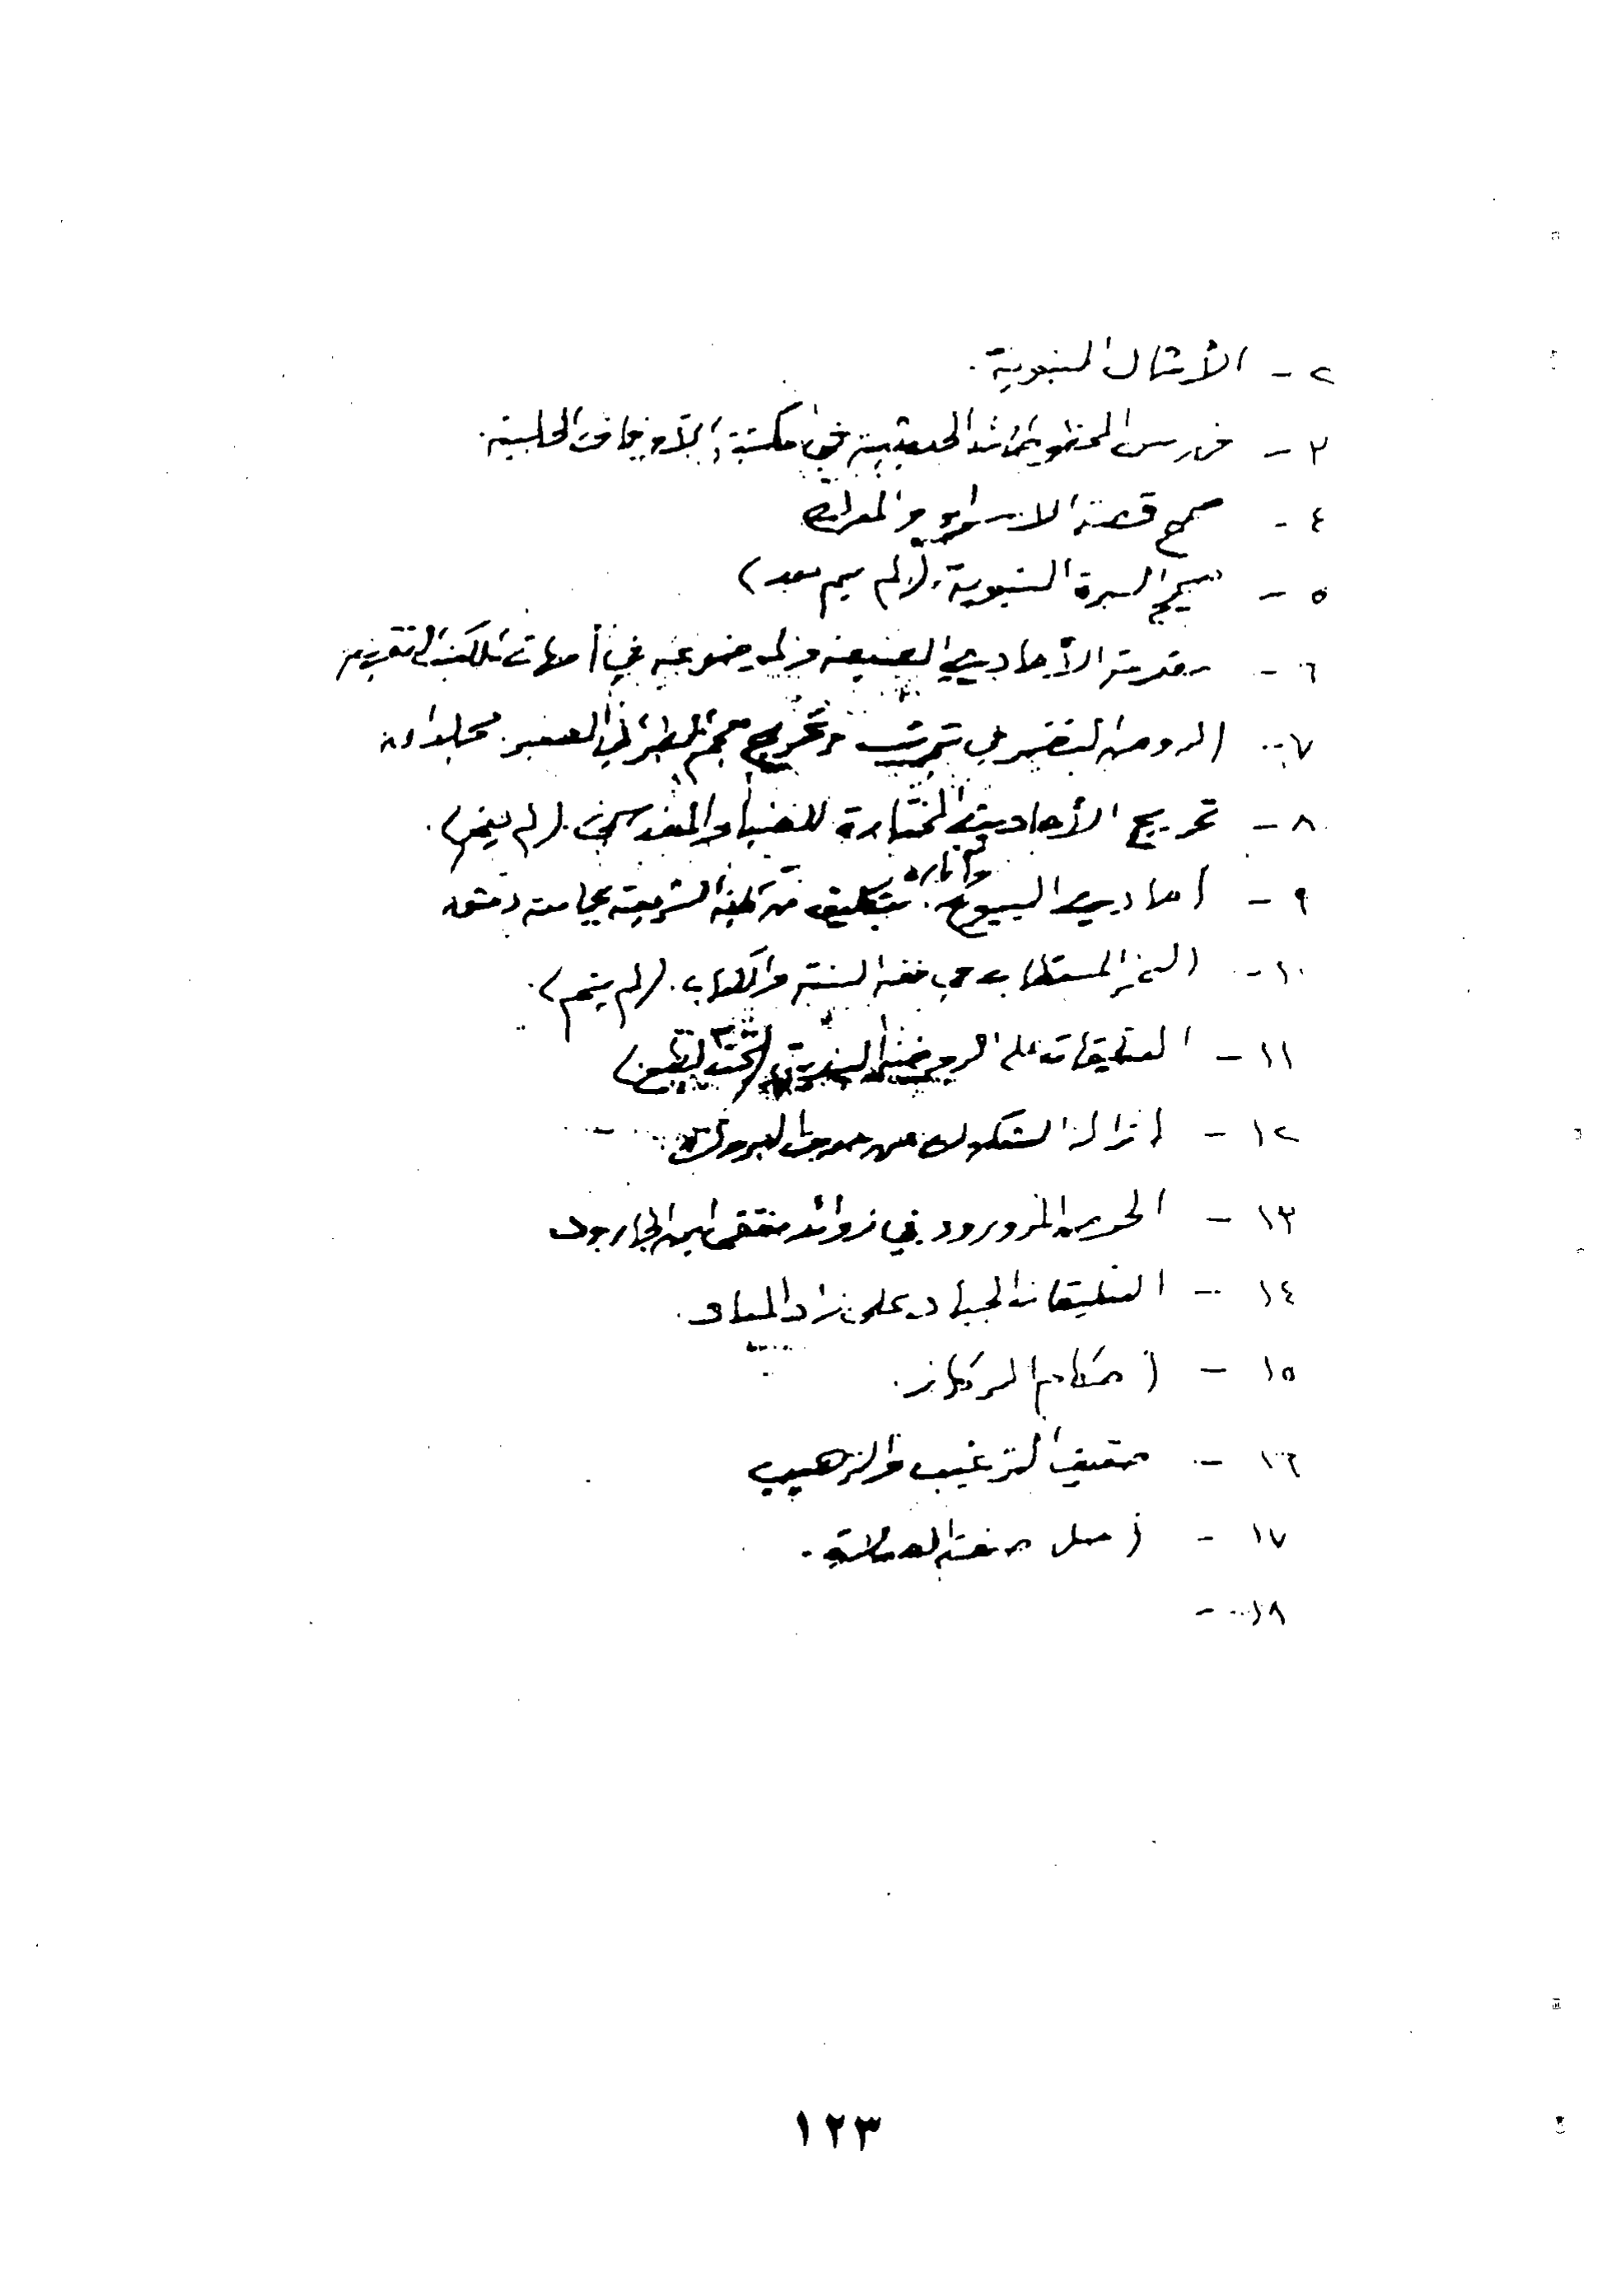 ٢ - الأمثال النبوية.
٣ - فهرس المخطوطات الحديثية في مكتبة الأوقاف الحلبية.
٤ - صحيح قصة الاسراء والمعراج
٥ - صحيح السيرة النبوية. (لم يتم بعد)
٦ - مقدمة الأحاديث الضعيفة والموضوعة في أمهات الكتب
٧ - الروض النضير في ترتيب وتخريج معجم الطبراني الصغير. مجلدان
٨ - تخريج الأحاديث المختارة للضياء المقدسي. (لم يتم).
٩ - أحاديث البيوع وآثاره. بتكليف من كلية الشريعة بجامعة دمشق
١٠ - الثمر المستطاب في فقه السنة والكتاب. (لم يتم).
١١ - التعليقات على الروضة الندية (تحت الطبع)
١٢ - ازالة الشكوك عن حديث البروك
١٣ - الحوض المورود في زوائد منتقى ابن الجارود
١٤ - التعليقات الجياد على زاد المعاد.
١٥ - أحكام الركاز.
١٦ - تحقيق الترغيب والترهيب
١٧ - أصل صفة الصلاة.
١٨ -
١٢٣